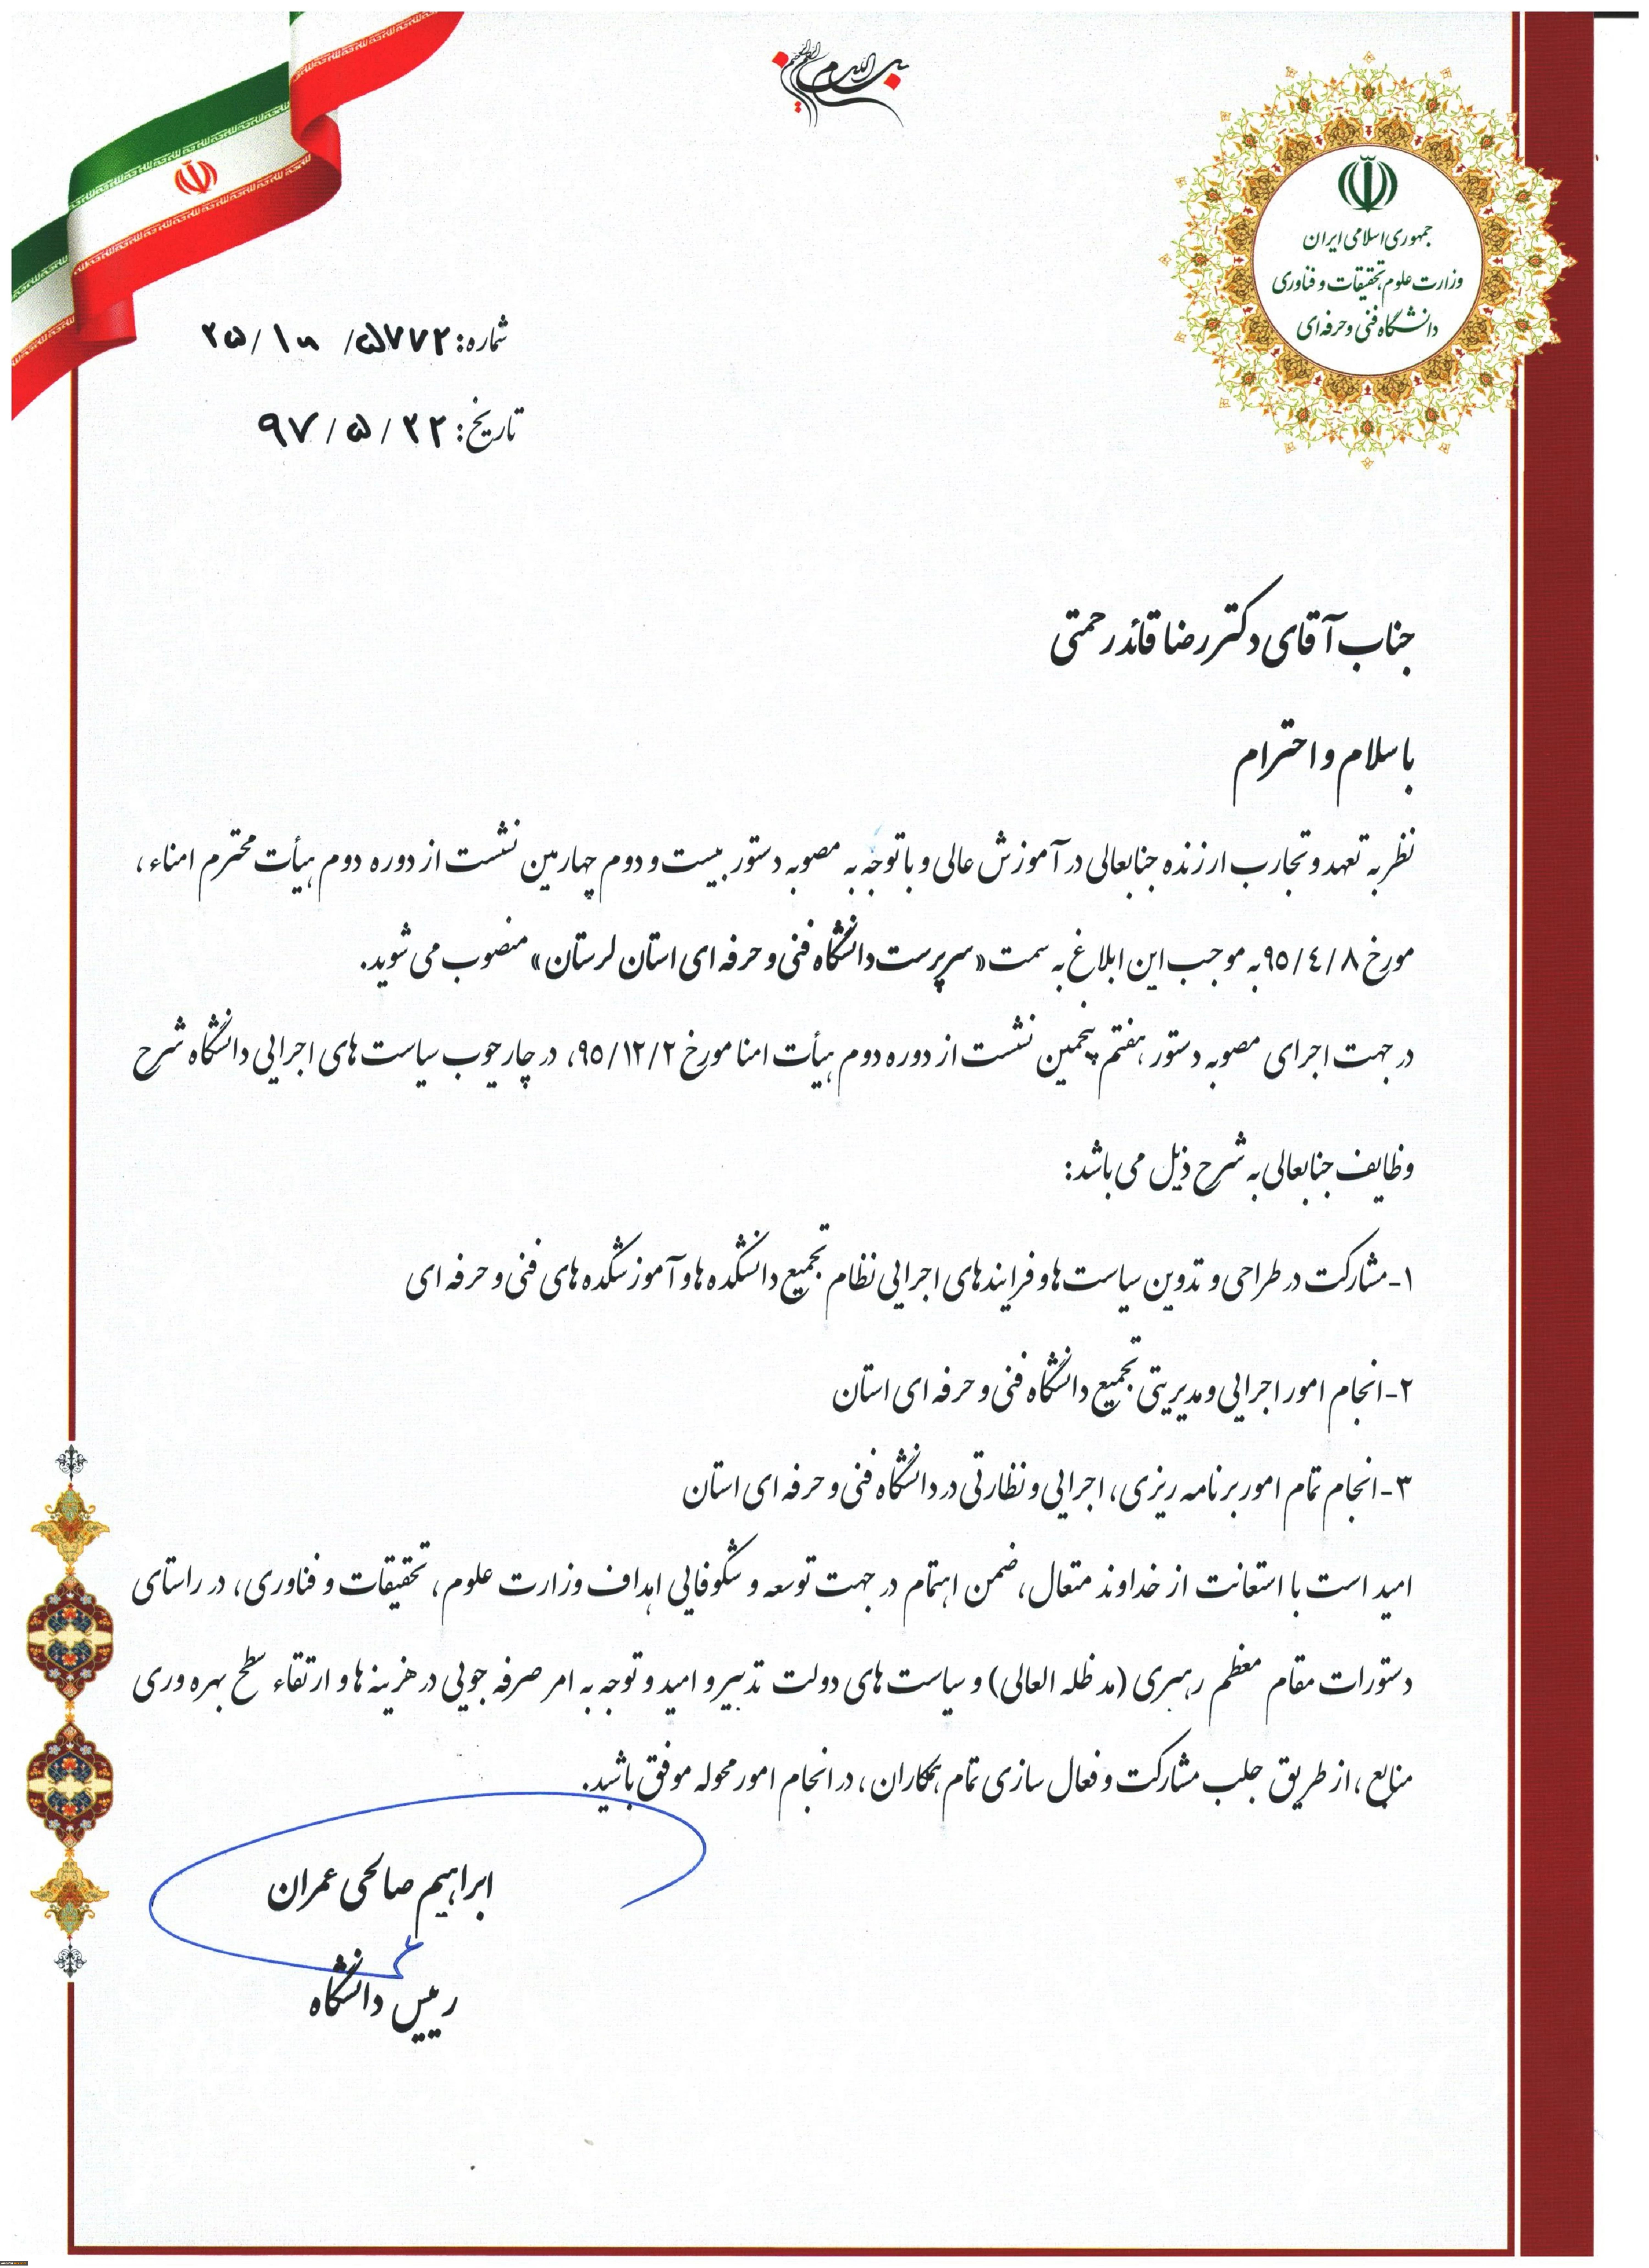 بسم الله الرحمن الرحیم
جمهوری اسلامی ایران
وزارت علوم، تحقیقات و فناوری
دانشگاه فنی و حرفه‌ای
شماره: ۵۷۷۲/
تاریخ: ۹۷/۵/۲۲
جناب آقای دکتر رضا قائدرحمتی
با سلام و احترام
نظر به تعهد و تجارب ارزنده جنابعالی در آموزش عالی و با توجه به مصوبه دستور بیست و دوم چهارمین نشست از دوره دوم هیأت محترم امناء،
مورخ ۹۵/٤/۸ به موجب این ابلاغ به سمت «سرپرست دانشگاه فنی و حرفه ای استان لرستان» منصوب می شوید.
در جهت اجرای مصوبه دستور هفتم پنجمین نشست از دوره دوم هیأت امنا مورخ ۹۵/۱۲/۲، در چارچوب سیاست های اجرایی دانشگاه شرح
وظایف جنابعالی به شرح ذیل می باشد:
۱-مشارکت در طراحی و تدوین سیاست ها و فرایندهای اجرایی نظام تجمیع دانشکده ها و آموزشکده های فنی و حرفه ای
۲-انجام امور اجرایی و مدیریتی تجمیع دانشگاه فنی و حرفه ای استان
۳-انجام تمام امور برنامه ریزی، اجرایی و نظارتی در دانشگاه فنی و حرفه ای استان
امید است با استعانت از خداوند متعال، ضمن اهتمام در جهت توسعه و شکوفایی اهداف وزارت علوم، تحقیقات و فناوری، در راستای
دستورات مقام معظم رهبری (مد ظله العالی) و سیاست های دولت تدبیر و امید و توجه به امر صرفه جویی در هزینه ها و ارتقاء سطح بهره وری
منابع، از طریق جلب مشارکت و فعال سازی تمام همکاران، در انجام امور محوله موفق باشید.
ابراهیم صالحی عمران
رییس دانشگاه